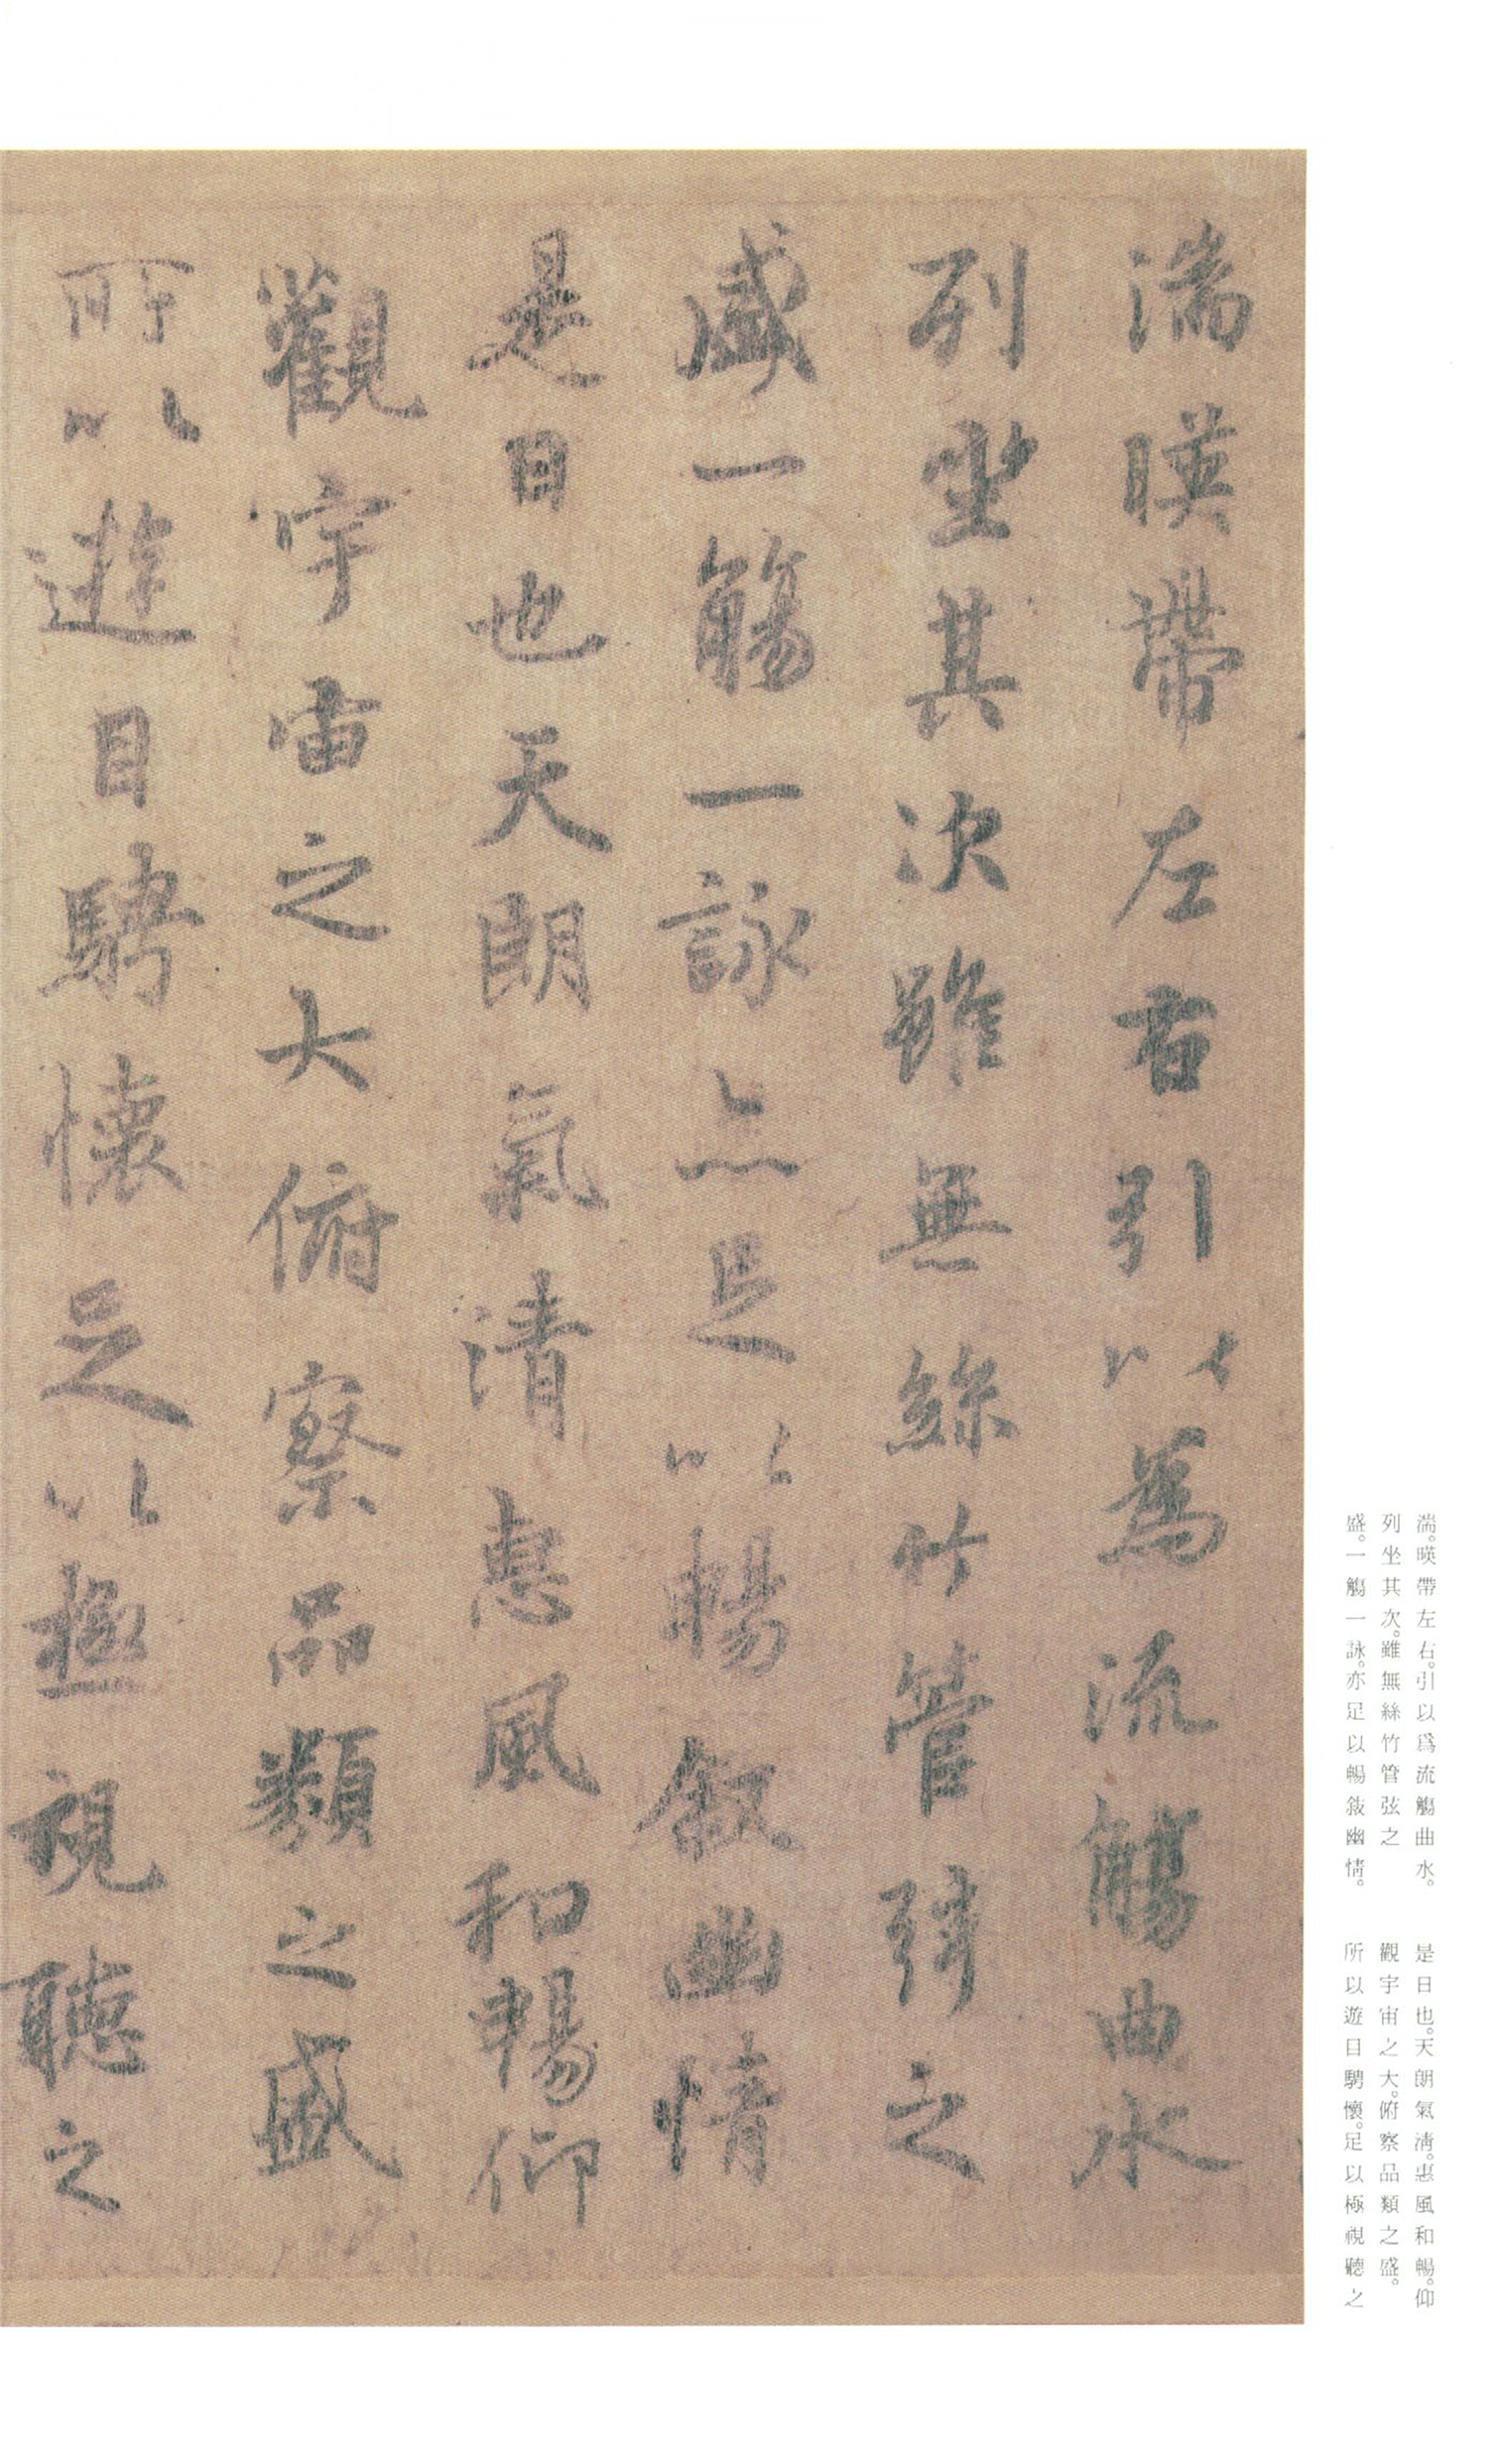 湍暎帶左右引以爲流觴曲水
列坐其次雖無絲竹管弦之
盛一觴一詠亦足以暢叙幽情
是日也天朗氣清惠風和暢仰
觀宇宙之大俯察品類之盛
所以遊目騁懷足以極視聽之
湍。暎帶左右。引以爲流觴曲水。
列坐其次。雖無絲竹管弦之
盛。一觴一詠。亦足以暢敍幽情。
是日也。天朗氣清。惠風和暢。仰
觀宇宙之大。俯察品類之盛。
所以遊目騁懷。足以極視聽之